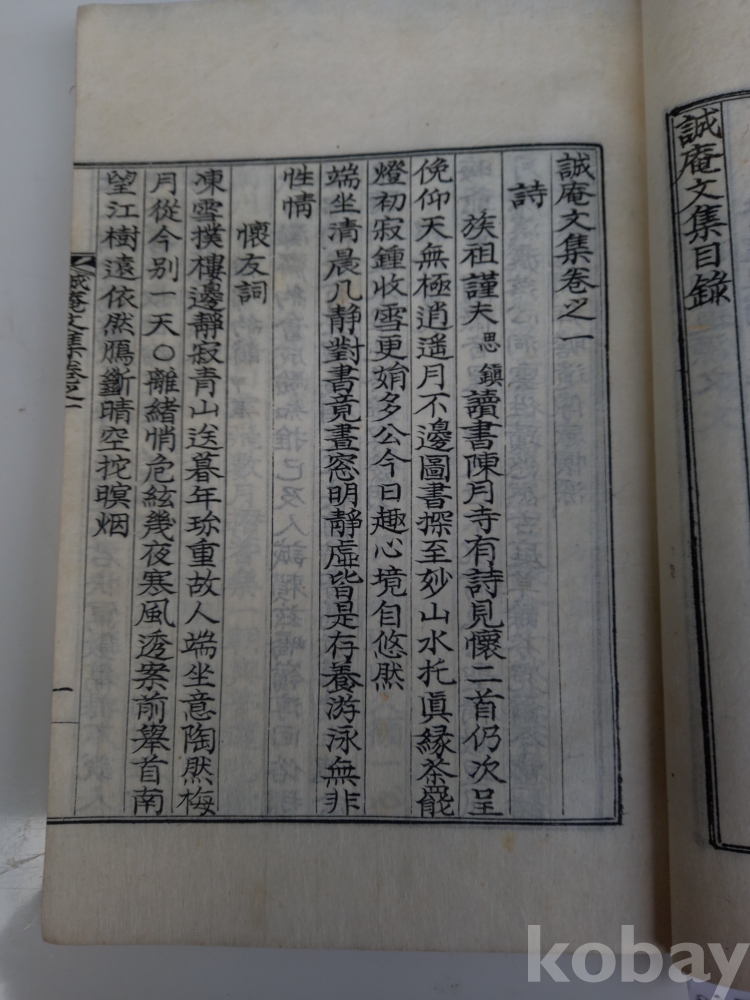 誠庵文集目錄
誠庵文集卷之一
詩
族祖謹夫思鎮讀書陳月寺有詩見懷二首仍次呈
俛仰天無極逍遥月不邊圖書探至妙山水托眞緣茶罷
燈初寂鍾收雪更姸多公今日趣心境自悠然
端坐清晨几靜對書竟晝窓明靜虛皆是存養游泳無非
性情
懷友詞
凍雪撲樓邊靜寂青山送暮年珎重故人端坐意陶然梅
月從今别一天〇離緖悄危絃幾夜寒風透案前擧首南
望江樹遠依然鴈斷晴空挓暝烟
誠庵文集卷之一
一
kobay